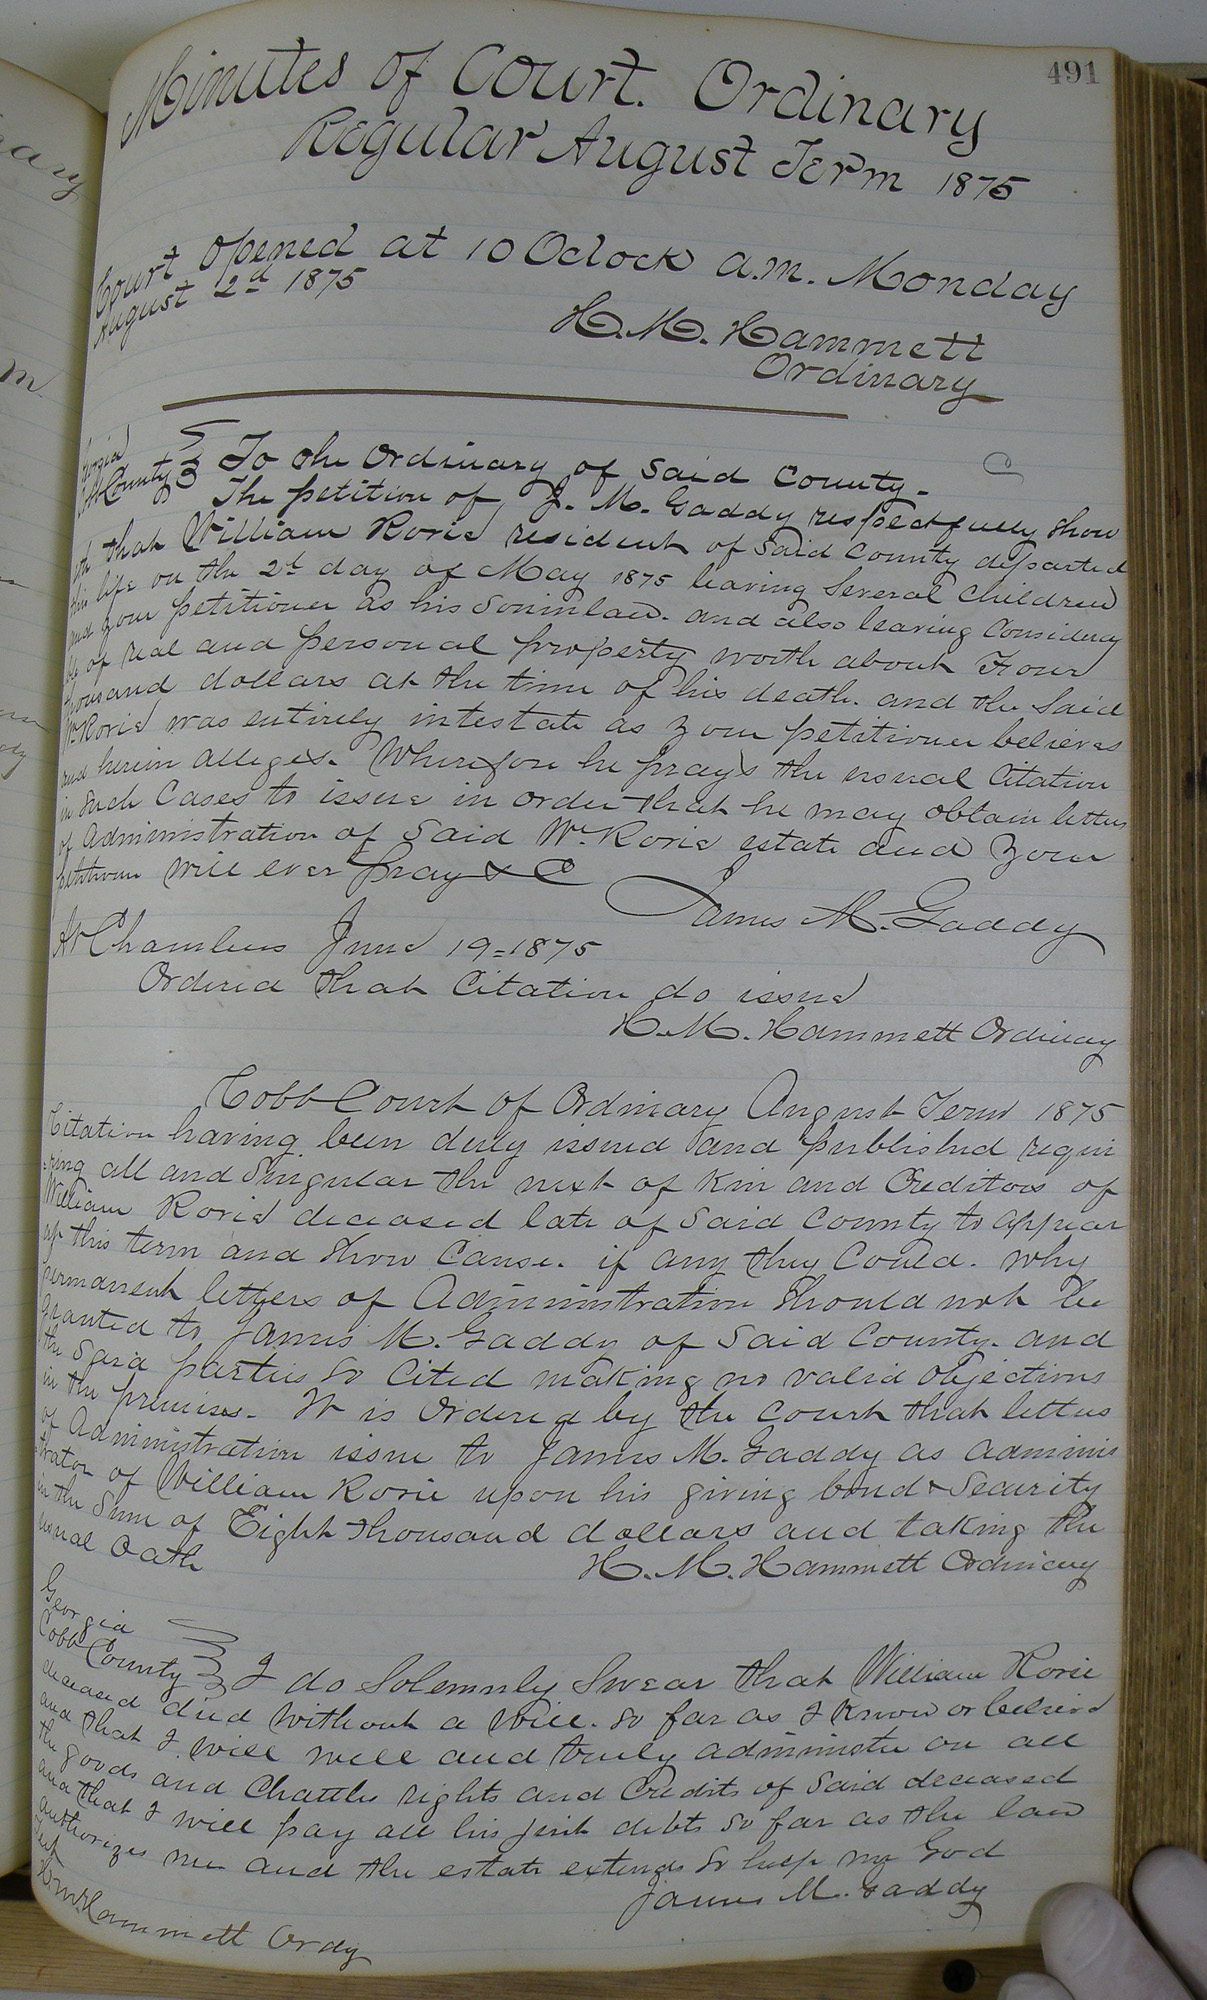 491
Minutes of Court. Ordinary
Regular August Term 1875
Court opened at 10 Oclock a.m. Monday
August 2d 1875
H. M. Hammett
Ordinary
Georgia
Cobb County To the Ordinary of Said County.
The petition of J. M. Gaddy respectfully Show
eth that William Rorie resident of Said County departed
this life on the 2d day of May 1875 leaving Several Children
and your petitioner as his Soninlaw. and also leaving Considera
ble of real and personal property worth about Four
thousand dollars at the time of his death. and the Said
Wm Rorie was entirely intestate as your petitioner believes
and herein alleges. Wherefore he prays the usual Citation
in Such Cases to issue in order that he may obtain letters
of Administration of Said Wm Rorie estate and Your
petitioner will ever pray & C
James M. Gaddy
At Chambers June 19=1875
Ordered that Citation do issue
H. M. Hammett Ordinary
Cobb Court of Ordinary August Term 1875
Citation having been duly issued and published requi
ring all and Singular the next of Kin and Creditors of
William Rorie deceased late of Said County to appear
at this term and Show Cause. if any they Could. why
permanent letters of Administration Should not be
granted to James M. Gaddy of Said County. and
the Said parties So Cited making no valid objections
in the premises. It is Ordered by the Court that letters
of Administration issue to James M. Gaddy as adminis
trator of William Rorie upon his giving bond & Security
in the Sum of Eight thousand dollars and taking the
usual Oath
H. M. Hammett Ordinary
Georgia
Cobb County I do Solemnly Swear that William Rorie
deceased died without a Will. So far as I Know or believe
and that I will well and truly administer on all
the goods and Chattles rights and Credits of Said deceased
and that I will pay all his just debts So far as the law
authorizes me and the estate extends So help my God
James M. Gaddy
Test
H. M. Hammett Ordy